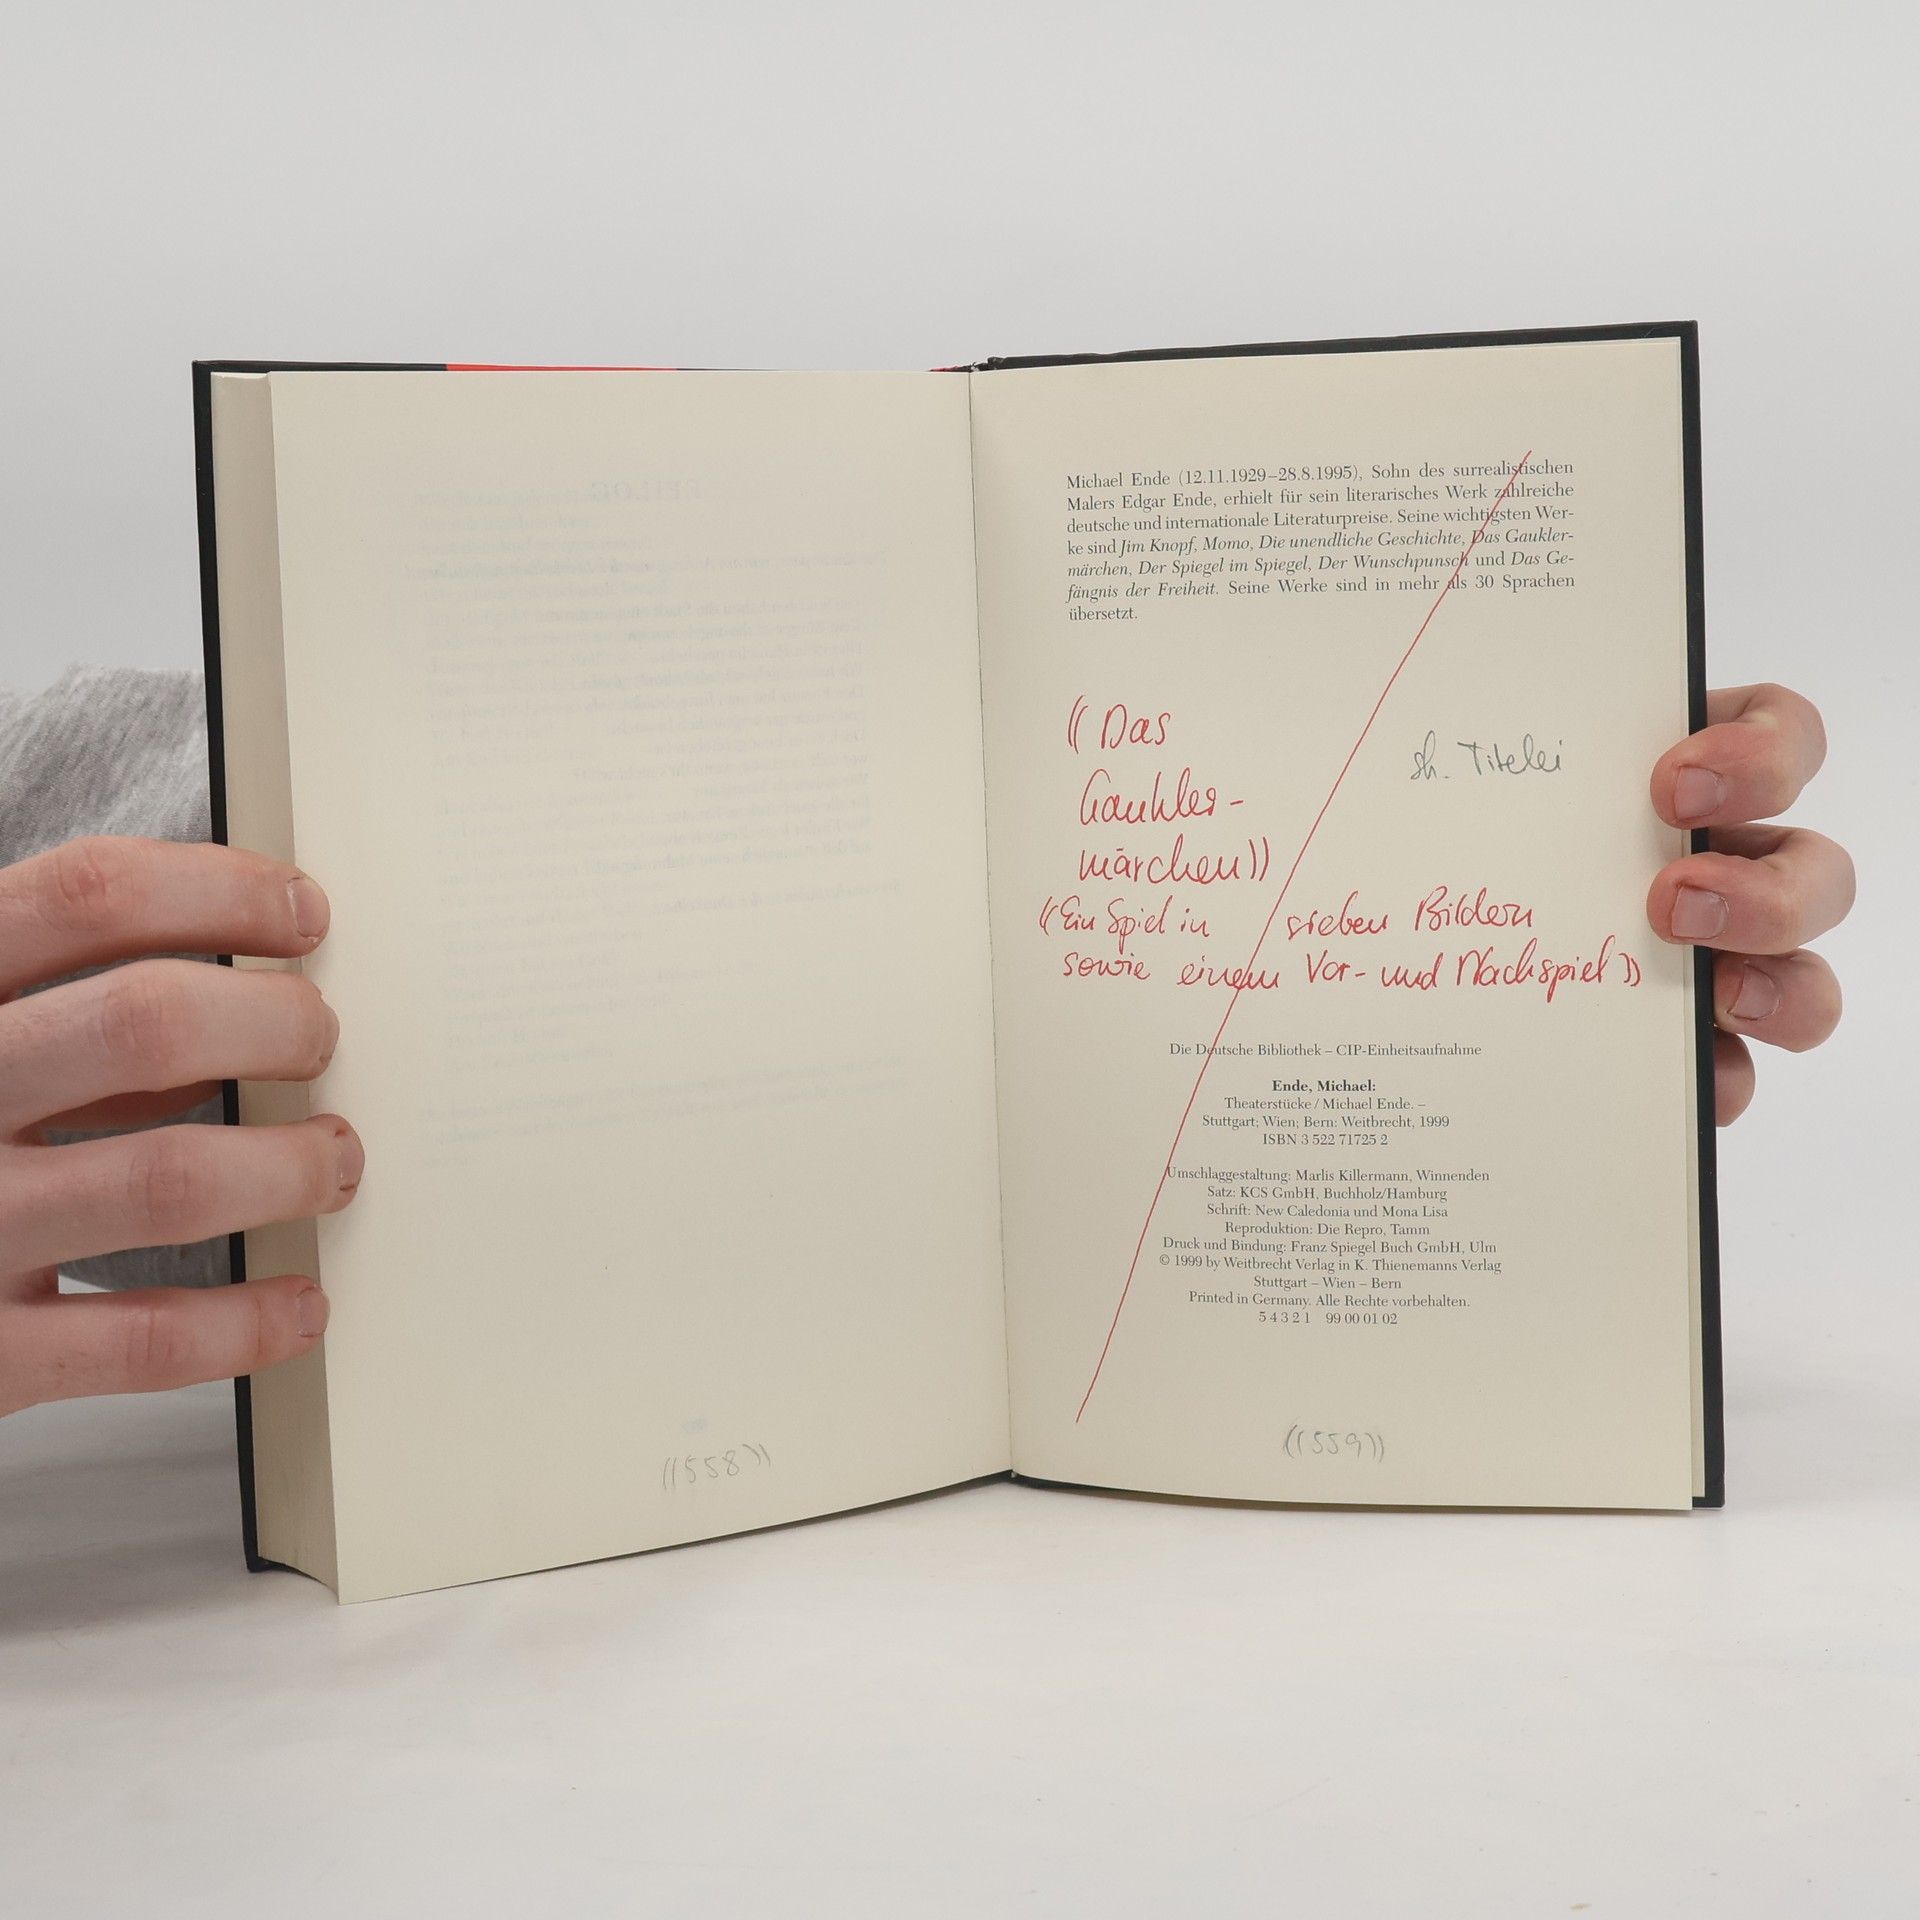 Michael Ende (12.11.1929–28.8.1995), Sohn des surrealistischen
Malers Edgar Ende, erhielt für sein literarisches Werk zahlreiche
deutsche und internationale Literaturpreise. Seine wichtigsten Wer-
ke sind Jim Knopf, Momo, Die unendliche Geschichte, Das Gaukler-
märchen, Der Spiegel im Spiegel, Der Wunschpunsch und Das Ge-
fängnis der Freiheit. Seine Werke sind in mehr als 30 Sprachen
übersetzt.
((Das
Gaukler-
märchen))
sh. Titelei
((Ein Spiel in sieben Bildern
sowie einem Vor- und Nachspiel))
Die Deutsche Bibliothek – CIP-Einheitsaufnahme
Ende, Michael:
Theaterstücke / Michael Ende. –
Stuttgart; Wien; Bern: Weitbrecht, 1999
ISBN 3 522 71725 2
Umschlaggestaltung: Marlis Killermann, Winnenden
Satz: KCS GmbH, Buchholz/Hamburg
Schrift: New Caledonia und Mona Lisa
Reproduktion: Die Repro, Tamm
Druck und Bindung: Franz Spiegel Buch GmbH, Ulm
© 1999 by Weitbrecht Verlag in K. Thienemanns Verlag
Stuttgart – Wien – Bern
Printed in Germany. Alle Rechte vorbehalten.
5 4 3 2 1 99 00 01 02
((558))
((559))